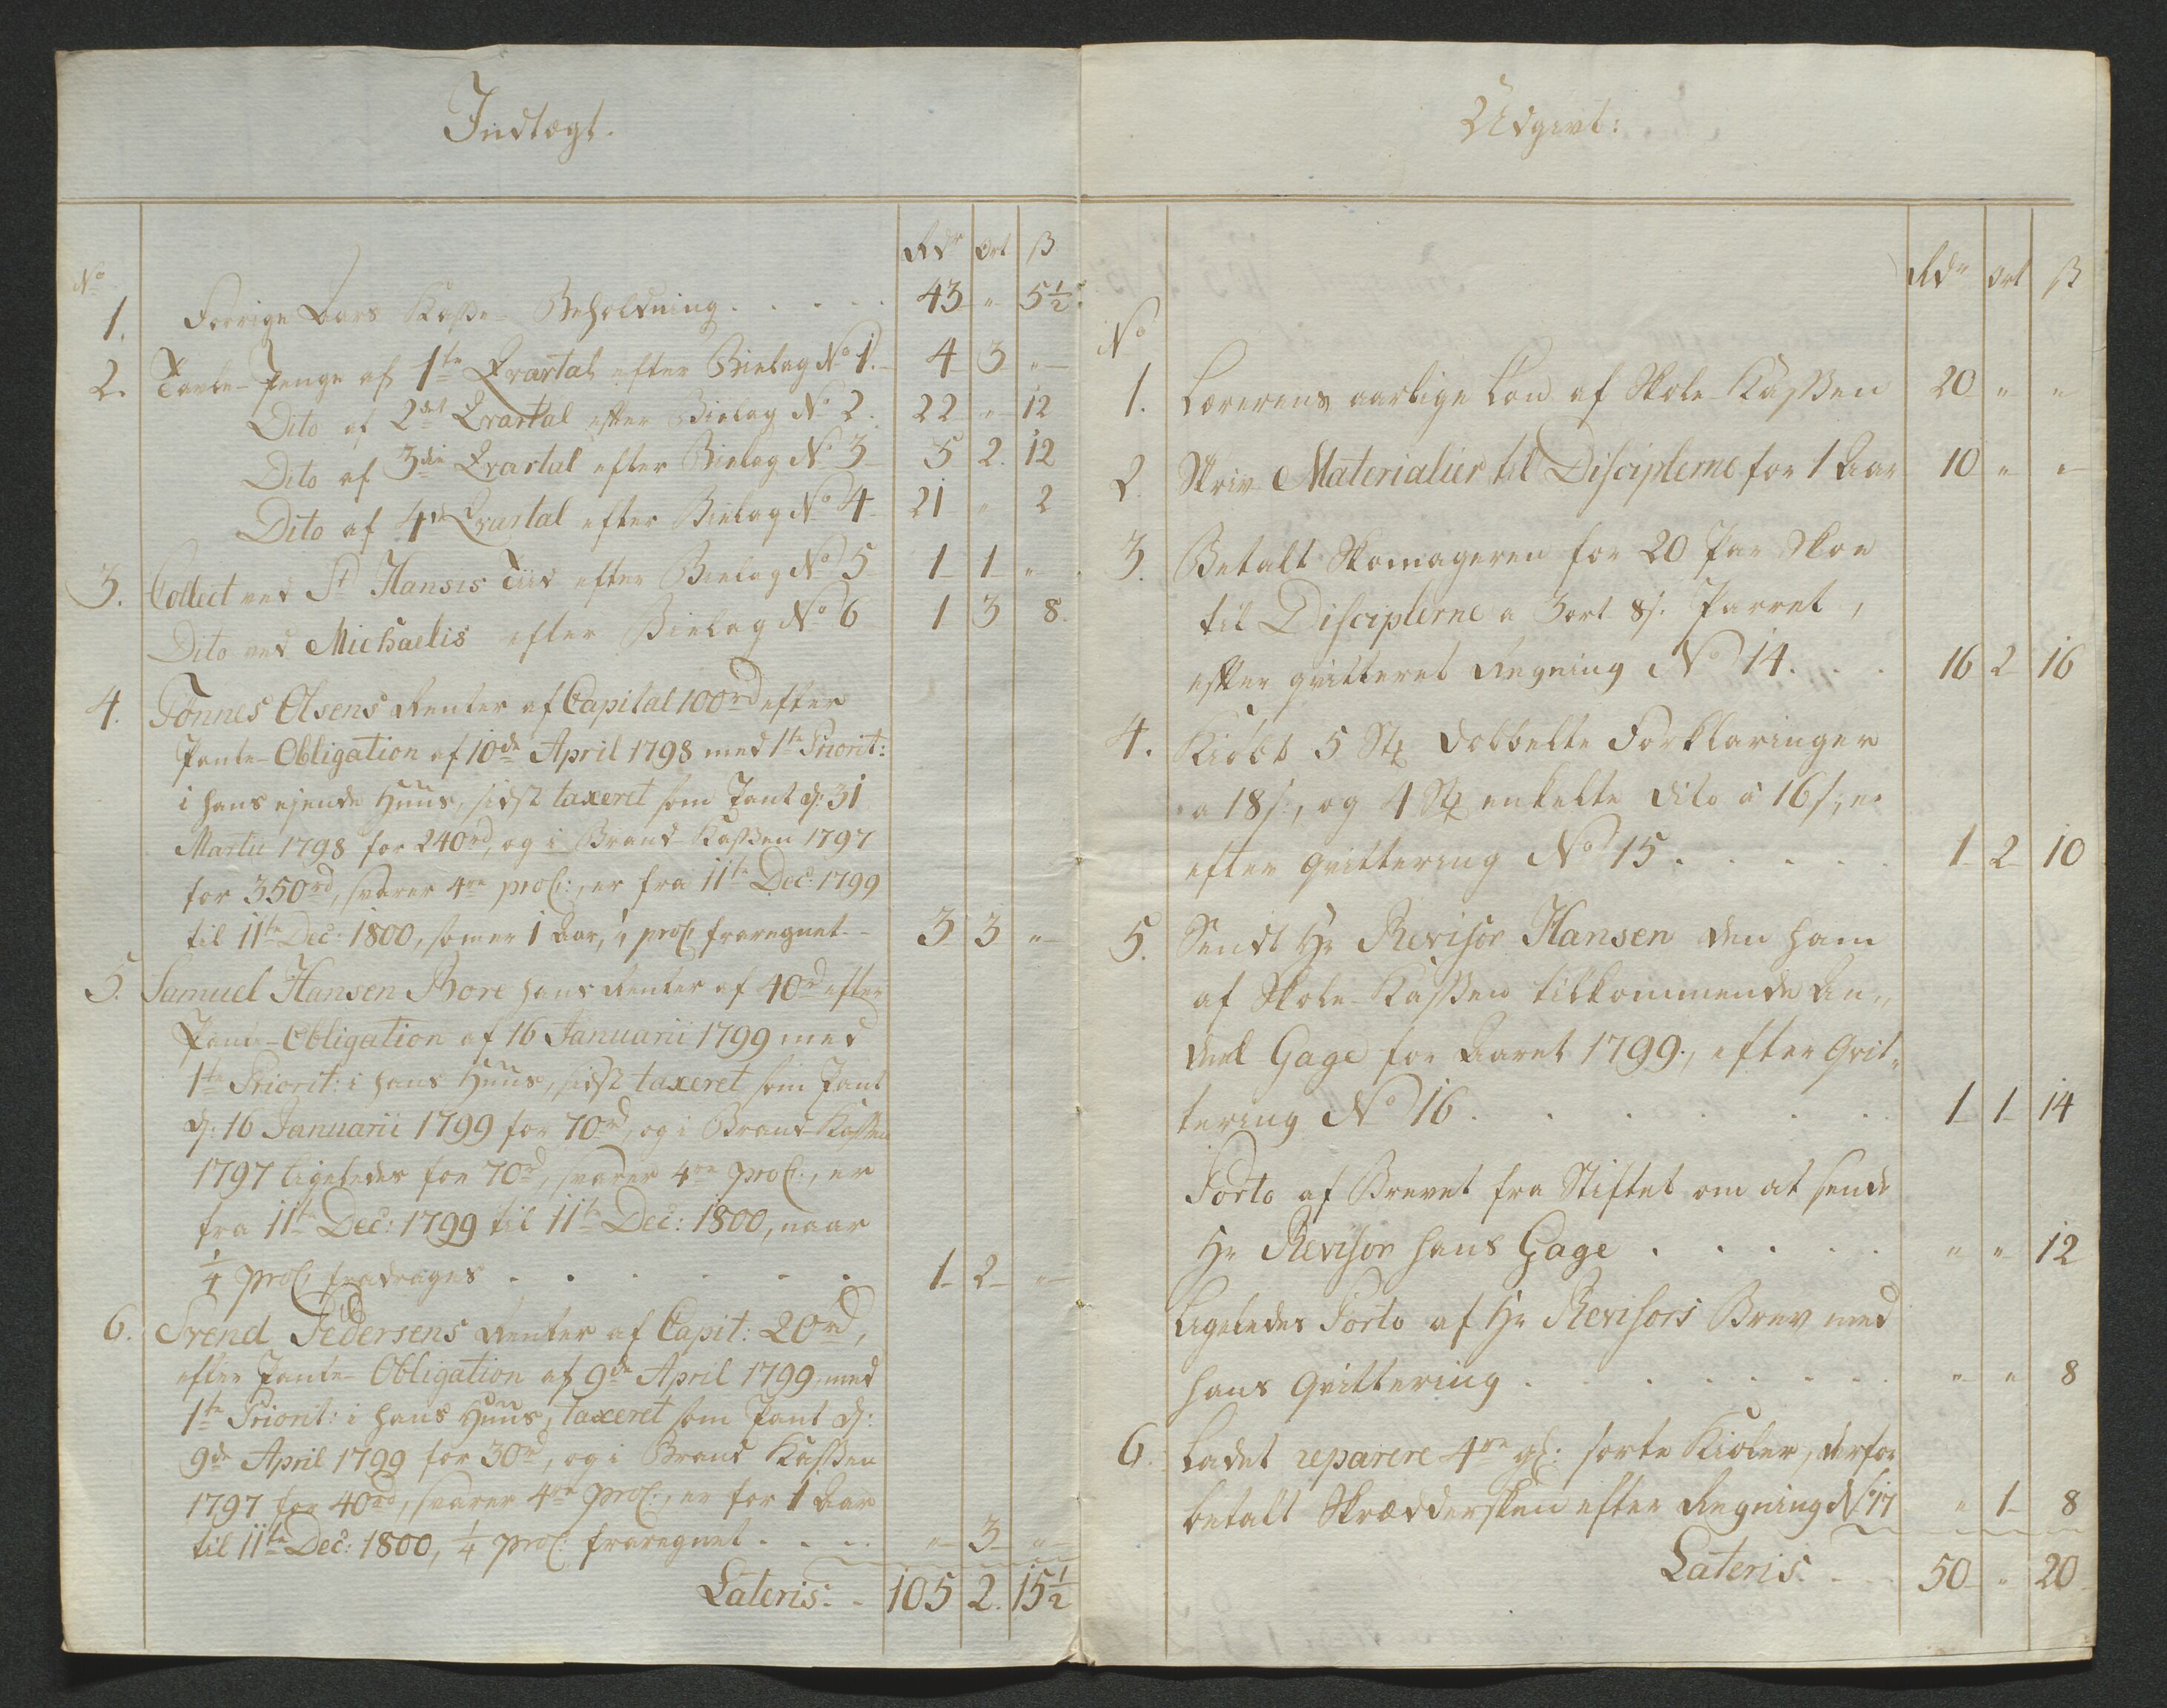 Indtægt.
Rdr Ort ß
No
1. Forrige Aars Kasse-Beholdning. . . . . 43 " 5½
2. Tavle-Penge af 1te Qvartal efter Bielag No 1. 4 3 "
Dito af 2det Qvartal efter Bielag No 2. 22 " 12
Dito af 3die Qvartal efter Bielag No 3 5 2. 12
Dito af 4de Qvartal efter Bielag No 4 21 " 2
3. Collect ved St Hanses Tiid efter Bielag No 5 1 1 "
Dito ved Michaelis efter Bielag No 6 1 3 8.
4. Tönnes Olsens Renter af Capital 100rd efter
Pante-Obligation af 10de April 1798 med 1te Priorit:
i hans ejende Huus, sidst taxeret som Pant d: 31
Martii 1798 for 240rd, og i Brand-Kassen 1797
for 350rd, svarer 4re proC:, er fra 11te Dec: 1799
til 11te Dec: 1800, som er 1 Aar, ¼ proC fraregnet - - 3 3 "
5. Samuel Hansen Bore hans Renter af 40rd efter
Pante-Obligation af 16 Januarii 1799 med
1te Priorit: i hans Huus, sidst taxeret som Pant
d: 16 Januarii 1799 for 70rd, og i Brand-Kassen
1797 ligeledes for 70rd, svarer 4re proC:, er
fra 11te Dec: 1799 til 11te Dec: 1800, naar
¼ proC fradrages . . . . . . 1 2 "
6. Svend Pedersens Renter af Capit: 20rd,
efter Pante-Obligation af 9de April 1799, med
1te Priorit: i hans Huus, taxeret som Pant d:
9de April 1799 for 30rd, og i Brand Kassen
1797 for 40rd, svarer 4re proC:, er for 1 Aar
til 11te Dec: 1800, ¼ proC: fraregnet . . . . " 3 "
Lateris. - 105 2. 15½
Udgivt:
Rdr Ort ß
No
1. Lærerens aarlige Løn af Skole-Kassen 20 " "
2. Skriv-Materialier til Disciplerne for 1 Aar 10 " "
3. Betalt Skomageren for 20 Par Skoe
til Disciplerne a 3ort 8s. Parret,
efter qvitteret Regning No 14. . . 16 2 16
4. Kiöbt 5 Stk dobbelte Forklaringer
a 18s., og 4 Stk enkelte dito à 16s., er
efter Qvittering No 15 . . . . . 1 2 10
5. Sendt Hr Revisor Hansen den ham
af Skole-Kassen tilkommende An„
deel Gage for Aaret 1799., efter Qvit„
tering No 16 . . . . . . 1 1 14
Porto af Brevet fra Stiftet om at sende
Hr Revisor hans Gage . . . . . " " 12
Ligeledes Porto af Hr Revisors Brev med
hans Qvittering . . . . . . . " " 8
6. Ladet reparere 4re gl: sorte Kioler, derfor
betalt Skræddersken efter Regning No 17 " 1 8
Lateris. - 50 " 20